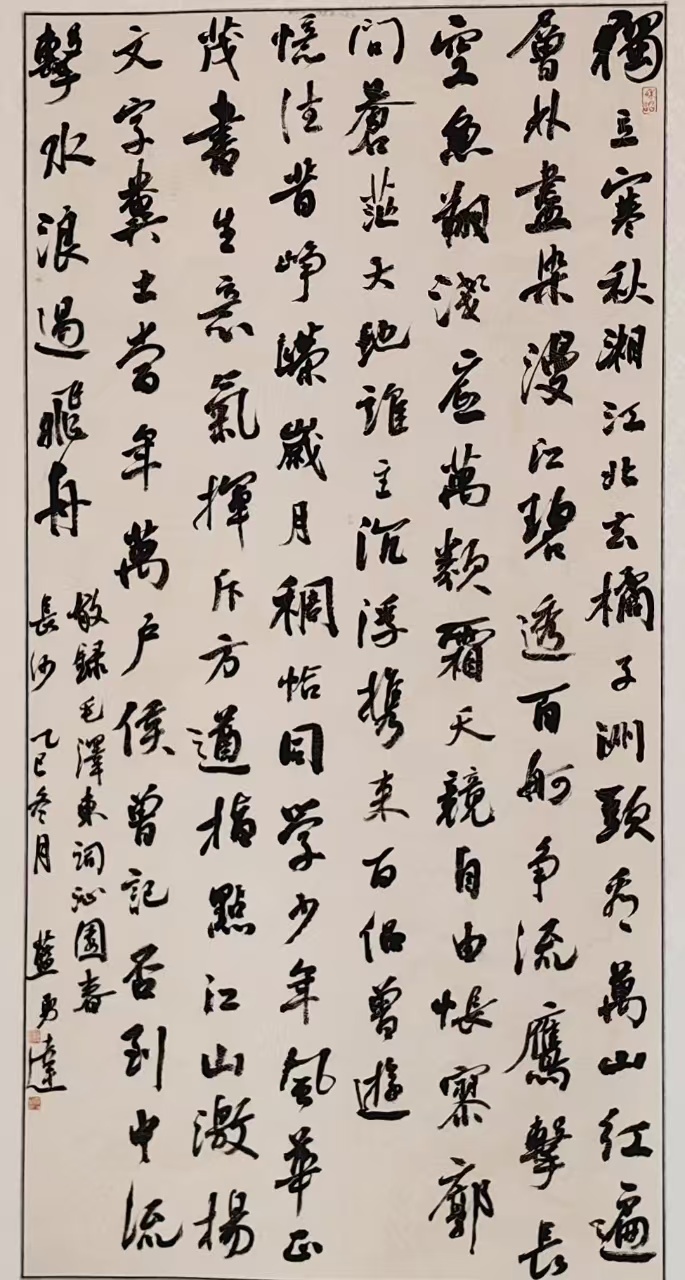 獨立寒秋湘江北去橘子洲頭看萬山紅遍
層林盡染漫江碧透百舸争流鷹擊長
空魚翔淺底萬類霜天競自由悵寥廓
問蒼茫大地誰主沉浮携来百侣曾遊
憶往昔崢嶸歲月稠恰同学少年風華正
茂書生意氣揮斥方遒指點江山激揚
文字糞土當年萬户侯曾記否到中流
擊水浪遏飛舟
敬錄毛澤東詞沁園春
長沙 乙巳冬月 藍勇達